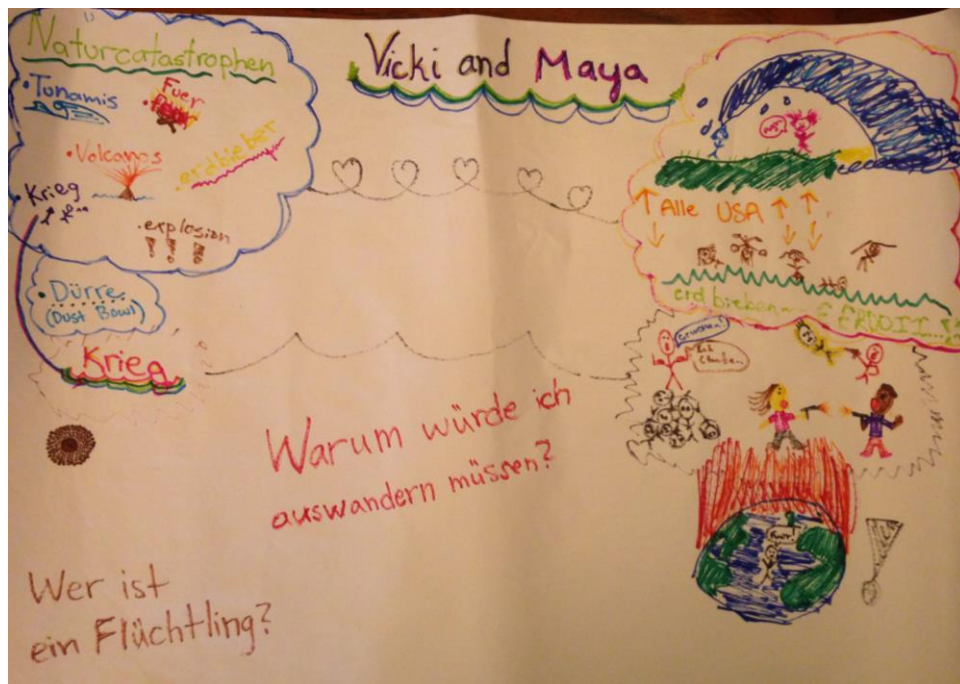 Naturcatastrophen
Vicki and Maya
• Tunamis
Fuer
• Volcanos
• erdbieber
Krieg
• explosion
!!!
• Dürre
(Dust Bowl)
Krieg
Alle USA
erd bieben
Warum würde ich
auswandern müssen?
Wer ist
ein Flüchtling?